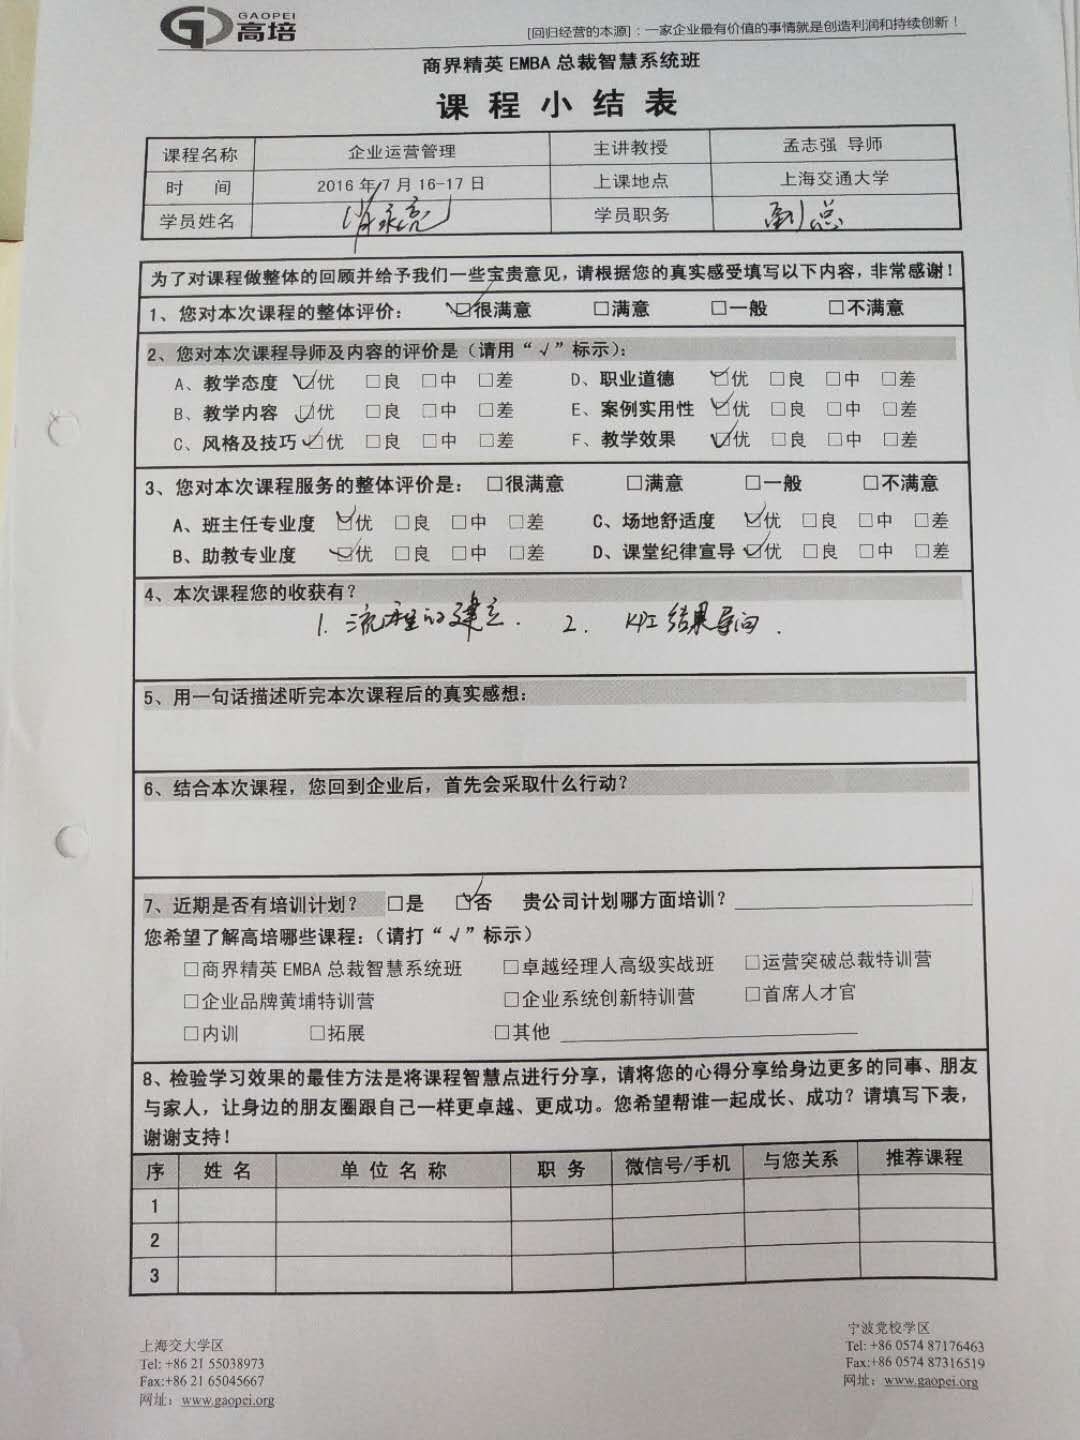 GAOPEI
高培
[回归经营的本源]：一家企业最有价值的事情就是创造利润和持续创新！
商界精英 EMBA 总裁智慧系统班
课程小结表
课程名称 企业运营管理 主讲教授 孟志强 导师
时 间 2016 年 7 月 16-17 日 上课地点 上海交通大学
学员姓名 肖永亮 学员职务 副总
为了对课程做整体的回顾并给予我们一些宝贵意见，请根据您的真实感受填写以下内容，非常感谢！
1、您对本次课程的整体评价： ☑很满意 □满意 □一般 □不满意
2、您对本次课程导师及内容的评价是（请用“√”标示）：
A、教学态度 ☑优 □良 □中 □差 D、职业道德 ☑优 □良 □中 □差
B、教学内容 ☑优 □良 □中 □差 E、案例实用性 ☑优 □良 □中 □差
C、风格及技巧 ☑优 □良 □中 □差 F、教学效果 ☑优 □良 □中 □差
3、您对本次课程服务的整体评价是： □很满意 □满意 □一般 □不满意
A、班主任专业度 ☑优 □良 □中 □差 C、场地舒适度 ☑优 □良 □中 □差
B、助教专业度 ☑优 □良 □中 □差 D、课堂纪律宣导 ☑优 □良 □中 □差
4、本次课程您的收获有？
1. 流程的建立. 2. KPI 结果导向.
5、用一句话描述听完本次课程后的真实感想：
6、结合本次课程，您回到企业后，首先会采取什么行动？
7、近期是否有培训计划？ □是 ☑否 贵公司计划哪方面培训？
您希望了解高培哪些课程：（请打“√”标示）
□商界精英 EMBA 总裁智慧系统班 □卓越经理人高级实战班 □运营突破总裁特训营
□企业品牌黄埔特训营 □企业系统创新特训营 □首席人才官
□内训 □拓展 □其他
8、检验学习效果的最佳方法是将课程智慧点进行分享，请将您的心得分享给身边更多的同事、朋友
与家人，让身边的朋友圈跟自己一样更卓越、更成功。您希望帮谁一起成长、成功？请填写下表，
谢谢支持！
序 姓名 单位名称 职务 微信号/手机 与您关系 推荐课程
1
2
3
上海交大学区
Tel: +86 21 55038973
Fax:+86 21 65045667
网址：www.gaopei.org
宁波党校学区
Tel: +86 0574 87176463
Fax:+86 0574 87316519
网址：www.gaopei.org